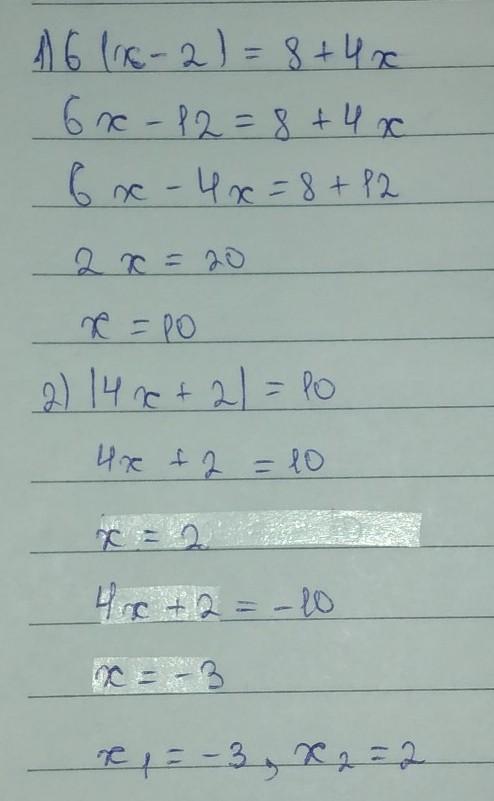 1) 6 (x - 2) = 8 + 4x
6x - 12 = 8 + 4x
6x - 4x = 8 + 12
2x = 20
x = 10
2) |4x + 2| = 10
4x + 2 = 10
x = 2
4x + 2 = -10
x = -3
x₁ = -3, x₂ = 2